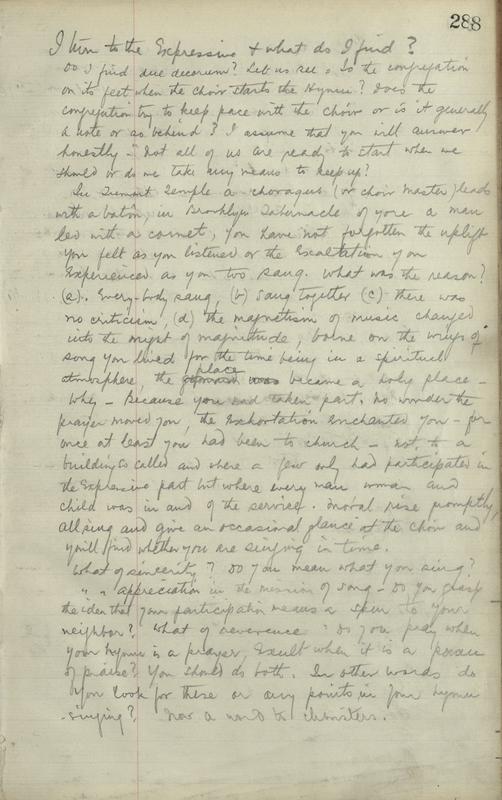 288
I turn to the Expressive & what do I find?
Do I find due decorum? Let us see. Is the congregation
on its feet when the Choir starts the Hymn? Does the
congregation try to keep pace with the choir or is it generally
a note or so behind? I assume that you will answer
honestly - Not all of us are ready to start when we
should or do we take any means to keep up?
In Tremont Temple a choragus (or choir master) leads
with a baton, in Brooklyn Tabernacle of yore a man
led with a cornet, You have not forgotten the uplift
you felt as you listened or the Exaltation you
Experienced as you too sang. What was the reason?
(a). Every-body sang, (b) sang together (c) there was
no criticism, (d) the magnetism of music changed
into the might of magnitude, borne on the wings of
song you lived for the time being in a spiritual
atmosphere, the place became a holy place -
Why - Because you had taken part. No wonder the
prayer moved you, the Exhortation Enchanted you - for
once at least you had been to church - not to a
building so called and where a few only had participated in
the Expressive part but where every man woman and
child was in and of the service. Moral rise promptly,
All sing and give an occasional glance at the choir and
you'll find whether you are singing in time.
What of sincerity? Do you mean what you sing?
" " appreciation in the mission of song - Do you grasp
the idea that your participation means a spur to your
neighbor? What of reverence? Do you pray when
your hymn is a prayer, Exult when it is a paean
of praise? You should do both. In other words do
you look for these or any points in your hymn
-singing? Now a word to choristers.